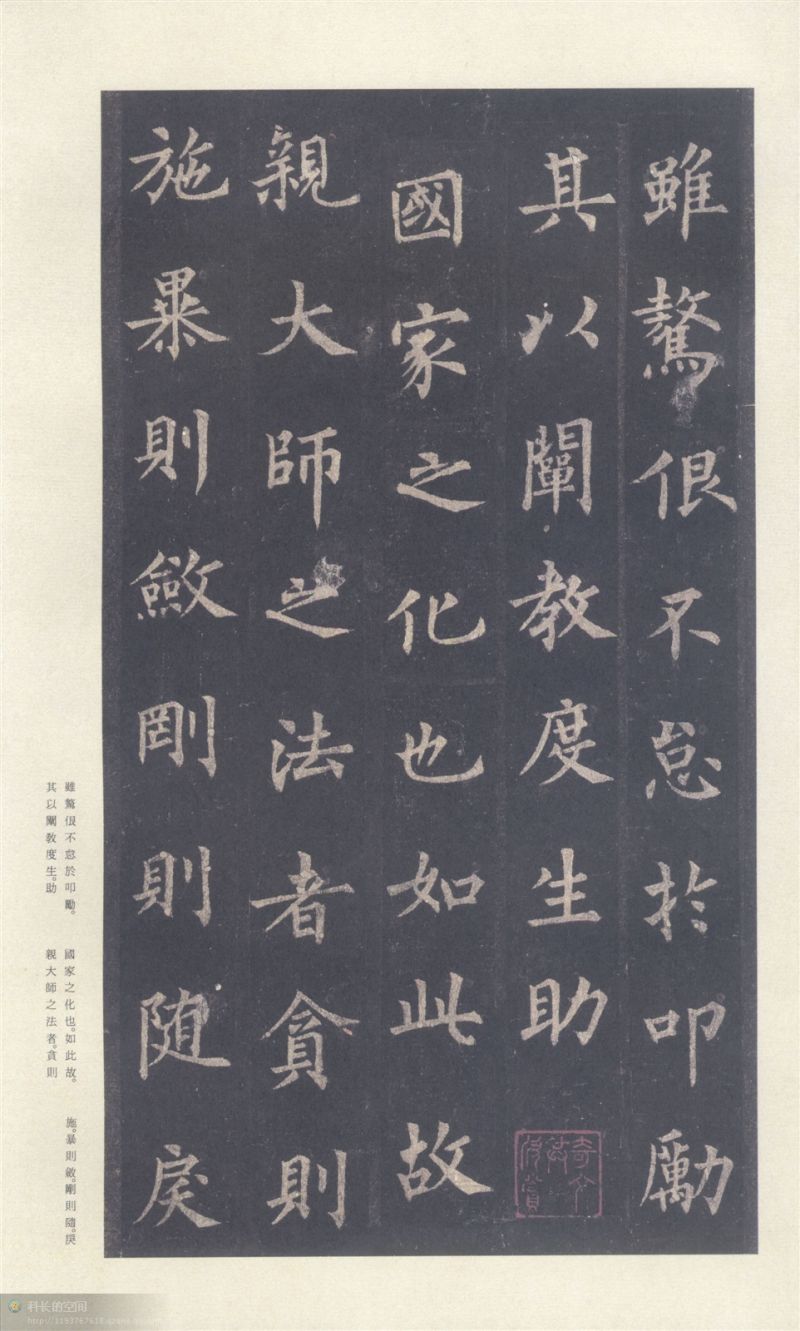 雖驁佷不怠於叩勵
其以闡教度生助
國家之化也如此故
親大師之法者貪則
施暴則斂剛則随戾
雖驁佷不怠於叩勵。
其以闡教度生。助
國家之化也。如此故。
親大師之法者。貪則
施。暴則斂。剛則隨。戾
科长的空间